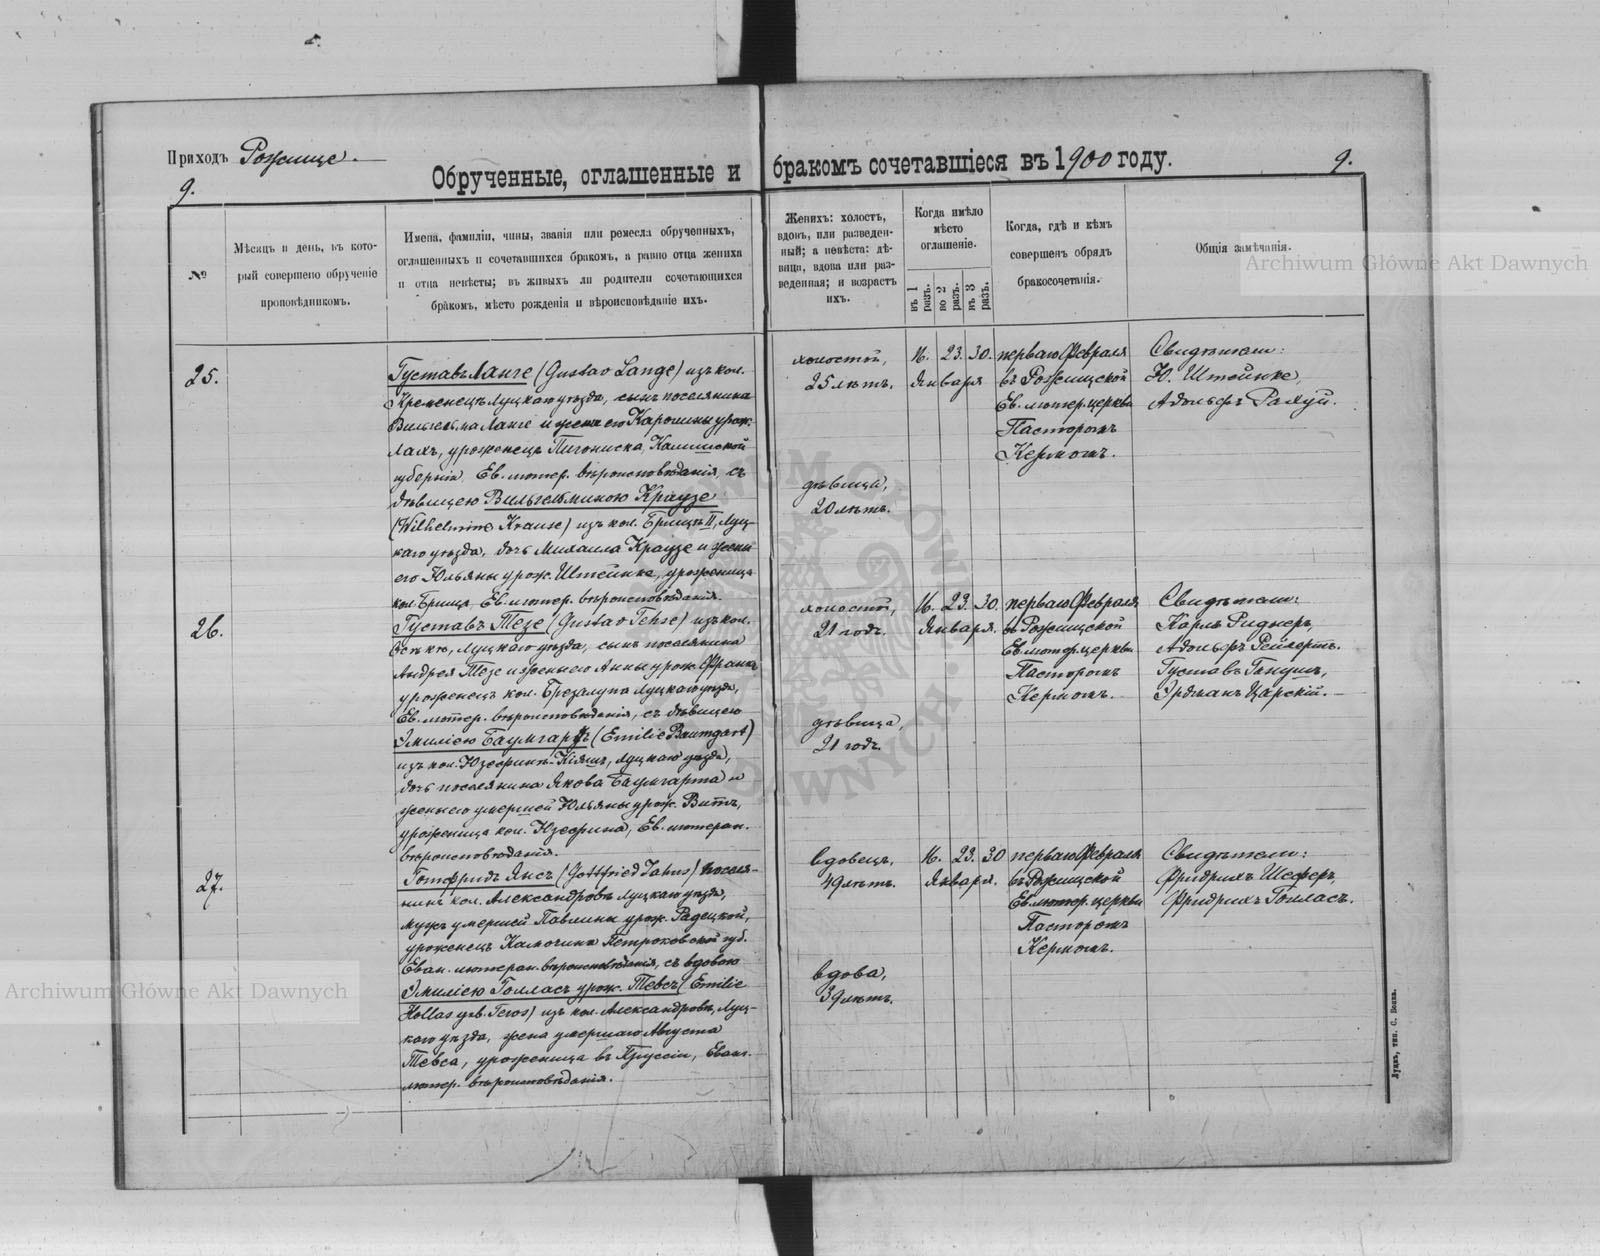 Приходъ Рожище.
9.
Обрученные, оглашенные и бракомъ сочетавшіеся въ 1900 году.
9.
№
Мѣсяцъ и день, въ кото-
рый совершено обрученіе
проповѣдникомъ.
Имена, фамиліи, чины, званія или ремесла обрученныхъ,
оглашенныхъ и сочетавшихся бракомъ, а равно отца жениха
и отца невѣсты; въ живыхъ ли родители сочетающихся
бракомъ, мѣсто рожденія и вѣроисповѣданіе ихъ.
Женихъ: холостъ,
вдовъ, или разведен-
ный; а невѣста: дѣ-
вица, вдова или раз-
веденная; и возрастъ
ихъ.
Когда имѣло
мѣсто
оглашеніе.
въ 1 разъ.
во 2 разъ.
въ 3 разъ.
Когда, гдѣ и кѣмъ
совершенъ обрядъ
бракосочетанія.
Общія замѣчанія.
Archiwum Główne Akt Dawnych
25.
Густавъ Ланге (Gustav Lange) изъ кол.
Кременецъ Луцкаго уѣзда, сынъ поселянина
Вильгельма Ланге и жены его Каролины урож.
Лахъ, уроженецъ Калишской
губерніи, Ев. лютер. вѣроисповѣданія, съ
дѣвицею Вильгельминою Краузе
(Wilhelmine Krause) изъ кол. Брищъ II, Луц-
каго уѣзда, дочь Михаила Краузе и жены
его Юльяны урож. Штейнке, уроженица
кол. Брища, Ев. лютер. вѣроисповѣданія.
холостой,
25 лѣтъ.
дѣвица,
20 лѣтъ.
16. 23. 30.
Января
перваго Февраля
въ Рожищской
Ев. лютер. церкви
Пасторомъ
Кермомъ.
Свидѣтели:
Ю. Штейнке,
Адольфъ Радуй.
26.
Густавъ Тезе (Gustav Tehse) изъ кол.
Луцкаго уѣзда, сынъ поселянина
Андрея Тезе и жены его Анны урож. Франкъ
уроженецъ кол. Брезалупа Луцкаго уѣзда,
Ев. лютер. вѣроисповѣданія, съ дѣвицею
Эмиліею Баумгартъ (Emilie Baumgart)
изъ кол. Юзефинъ-Кіяшъ, Луцкаго уѣзда,
дочь поселянина Якова Баумгарта и
жены его умершей Юльяны урож. Витъ,
уроженица кол. Юзефина, Ев. лютеран.
вѣроисповѣданія.
холостой,
21 годъ.
дѣвица,
21 годъ.
16. 23. 30.
Января.
перваго Февраля
въ Рожищской
Ев. лютер. церкви
Пасторомъ
Кермомъ.
Свидѣтели:
Карлъ Ридгеръ,
Адольфъ Рейлертъ.
Густавъ Ганушъ,
Эрдманъ Царскій.
27.
Готфридъ Янсъ (Gottfried Jahns) поселя-
нинъ кол. Александровъ Луцкаго уѣзда,
мужъ умершей Павлины урож. Радецкой,
уроженецъ Камочина Петроковской губ.
Еван. лютеран. вѣроисповѣданія, съ вдовою
Эмиліею Голласъ урож. Тевсъ (Emilie
Hollas geb. Tews) изъ кол. Александровъ, Луц-
каго уѣзда, жена умершаго Августа
Тевса, уроженица въ Пруссіи, Еванг.
лютер. вѣроисповѣданія.
вдовецъ,
49 лѣтъ.
вдова,
39 лѣтъ.
16. 23. 30
Января.
перваго Февраля
въ Рожищской
Ев. лютер. церкви
Пасторомъ
Кермомъ.
Свидѣтели:
Фридрихъ Шеферъ,
Фридрихъ Голласъ.
Archiwum Główne Akt Dawnych
ARCHIWUM GŁÓWNE AKT DAWNYCH